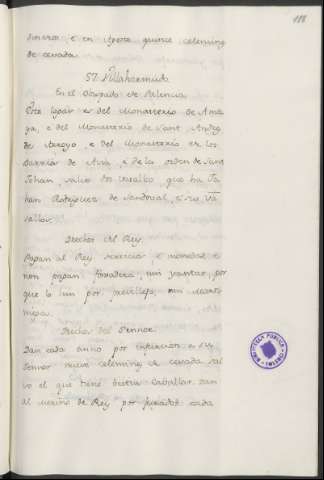 118
dineros e en Agosto quince celemines
de cevada.
57. Villahermud.
En el Obispado de Palencia.
Este logar es del Monasterio de Ama
ga, e del Monasterio de Sant Andrés
de Arroyo, e del Monasterio de los
Barrios de Avia, e de la orden de Sant
Johan, salvo dos vasallos que ha Jo
han Rodriguez de Sandoval, e son va
sallos.
Derechos del Rey.
Pagan al Rey servicio e monedas e
non pagan fonsadera, nin yantar, por
que lo han por previllejo, nin marti
niega.
Derechos del Sennor.
Dan cada anno por infurcion a su
Sennor nueve celemines de cevada sal
vo el que tiene
al Merino de Rey por cada
BIBLIOTECA PUBLICA